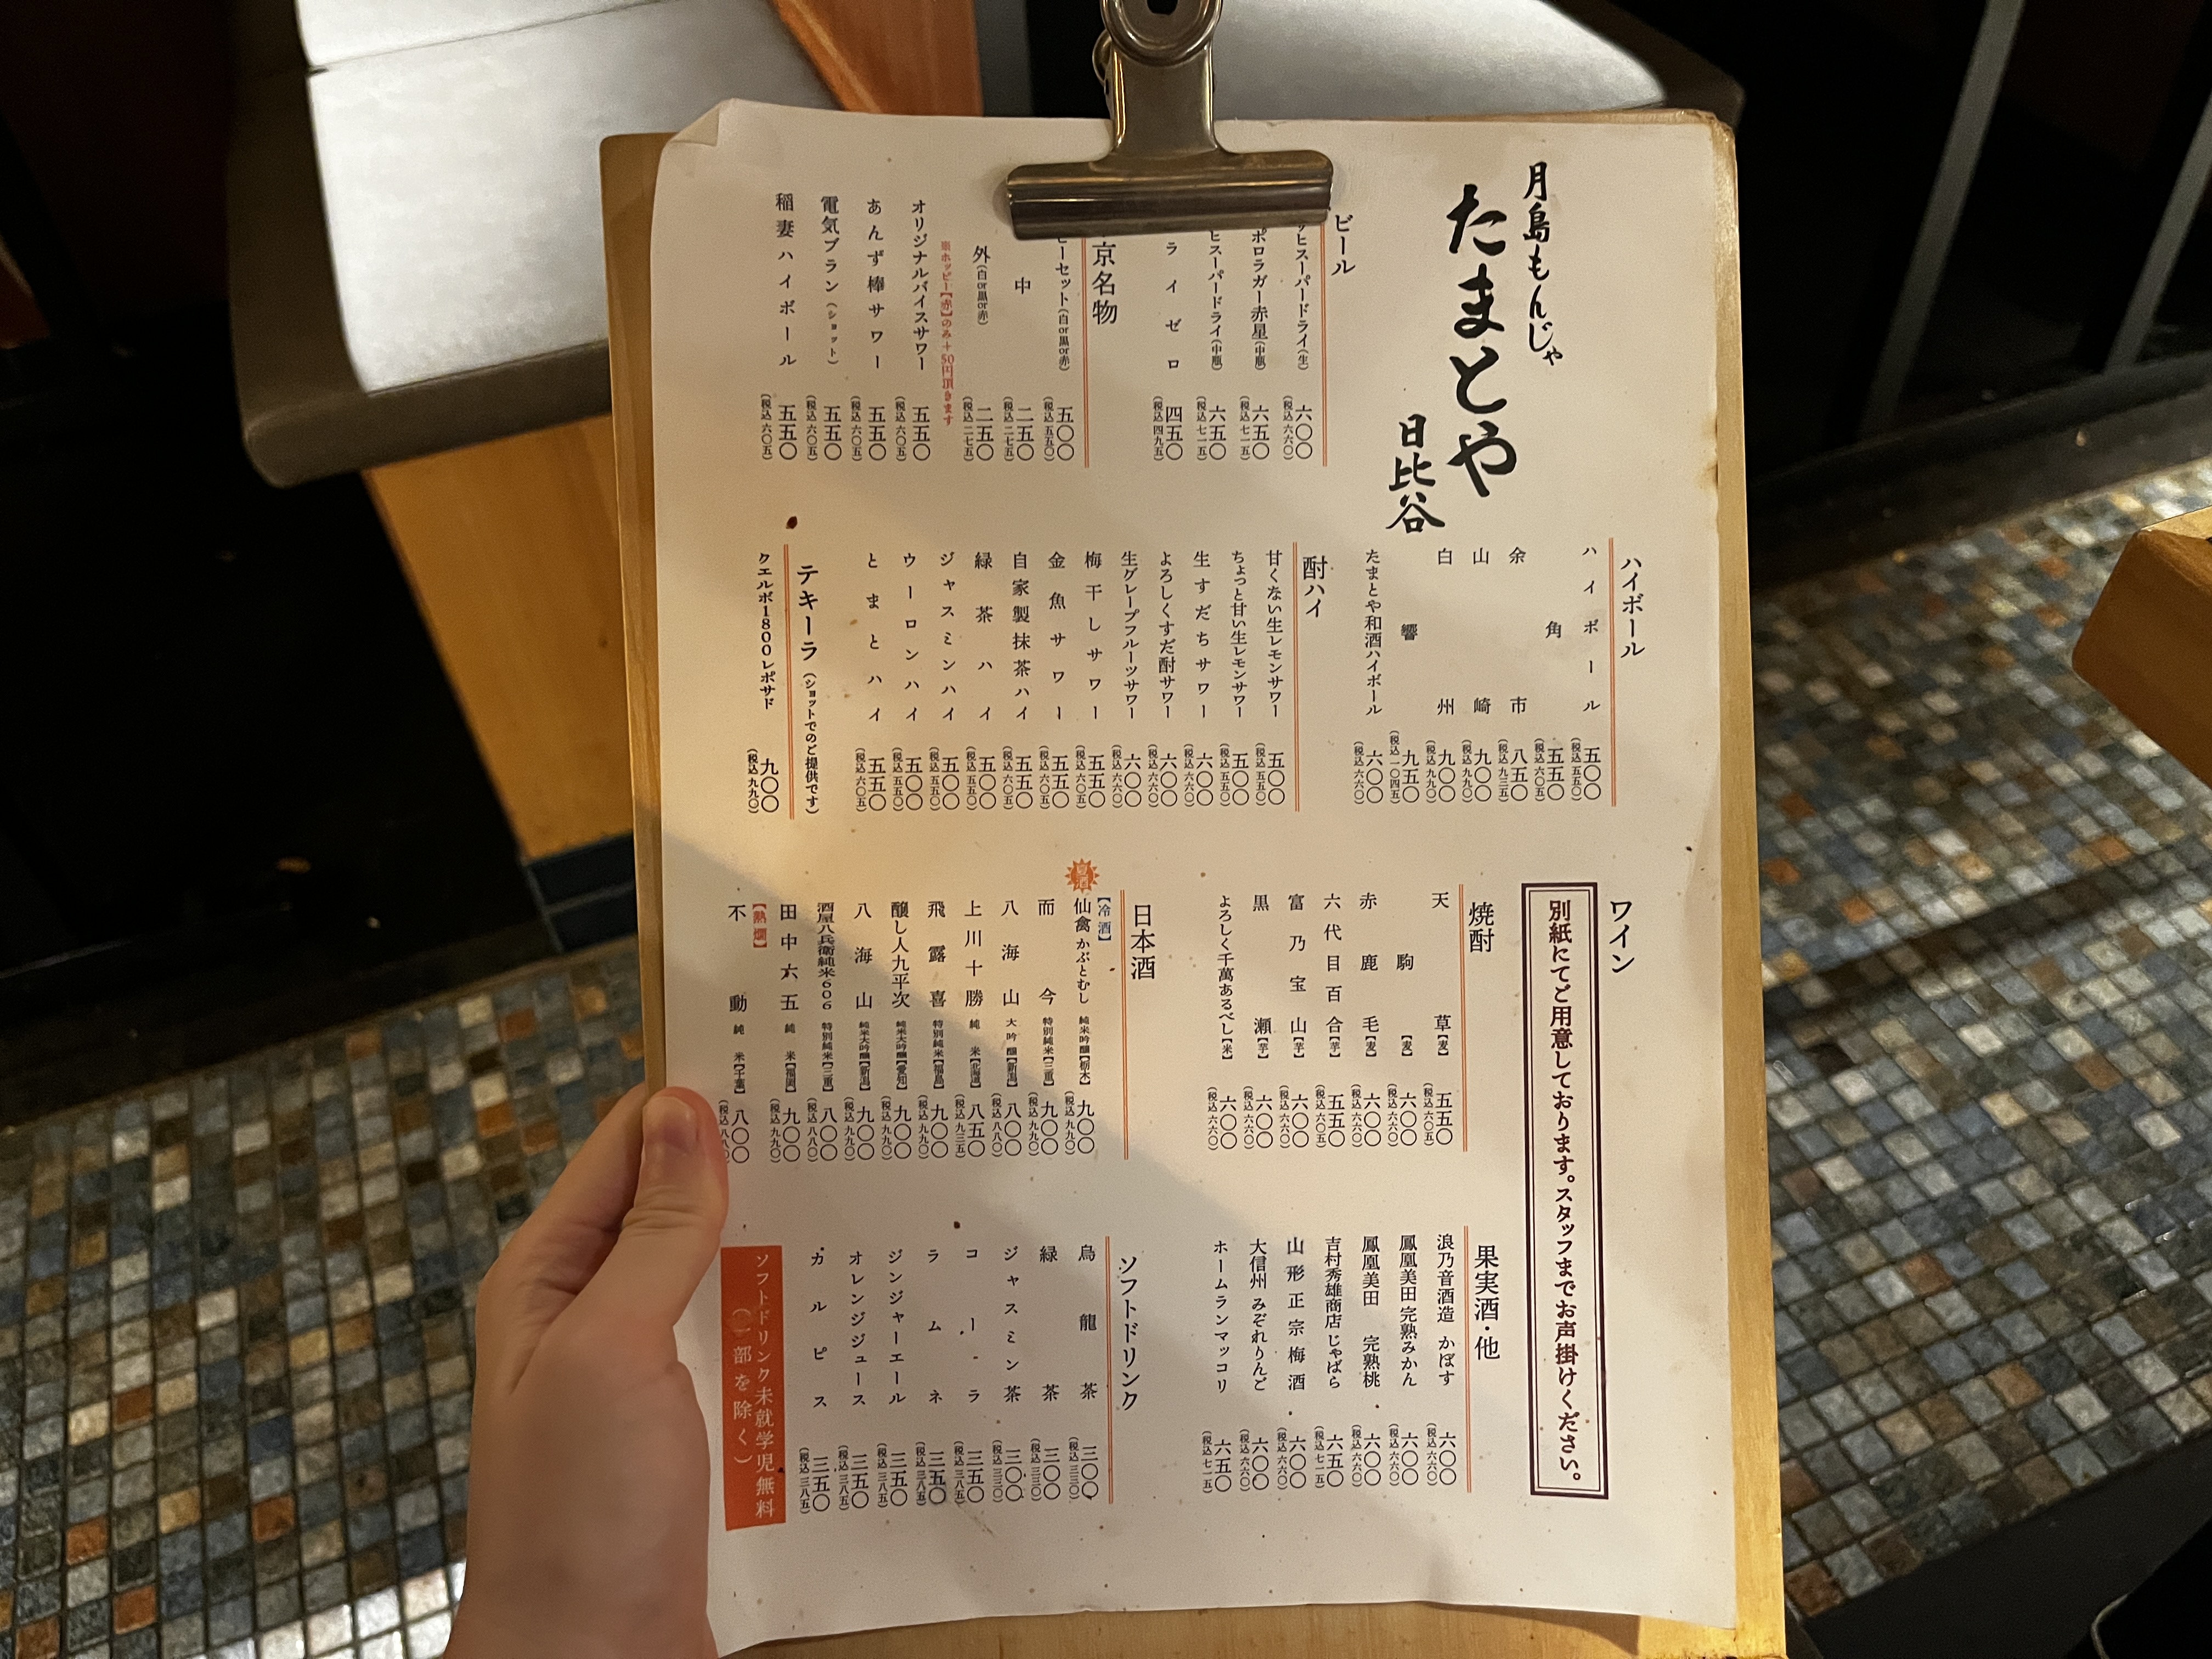 月島もんじゃ
たまとや
日比谷
ビール
ヒスーパードライ(生) 六〇〇 (税込 六六〇)
ポロラガー赤星(中瓶) 六五〇 (税込 七一五)
ヒスーパードライ(中瓶) 六五〇 (税込 七一五)
ライゼロ 四五〇 (税込 四九五)
京名物
ーセット(白or黒or赤) 五〇〇 (税込 五五〇)
中 二五〇 (税込 二七五)
外(白or黒or赤) 二五〇 (税込 二七五)
※ホッピー【赤】のみ+50円頂きます
オリジナルバイスサワー 五五〇 (税込 六〇五)
あんず棒サワー 五五〇 (税込 六〇五)
電気ブラン(ショット) 五五〇 (税込 六〇五)
稲妻ハイボール 五五〇 (税込 六〇五)
ハイボール
ハイボール 五〇〇 (税込 五五〇)
角 五五〇 (税込 六〇五)
余市 八五〇 (税込 九三五)
山崎 九〇〇 (税込 九九〇)
白州 九〇〇 (税込 九九〇)
響 九五〇 (税込 一〇四五)
たまとや和酒ハイボール 六〇〇 (税込 六六〇)
酎ハイ
甘くない生レモンサワー 五〇〇 (税込 五五〇)
ちょっと甘い生レモンサワー 五〇〇 (税込 五五〇)
生すだちサワー 六〇〇 (税込 六六〇)
よろしくすだ酎サワー 六〇〇 (税込 六六〇)
生グレープフルーツサワー 六〇〇 (税込 六六〇)
梅干しサワー 五五〇 (税込 六〇五)
金魚サワー 五五〇 (税込 六〇五)
自家製抹茶ハイ 五五〇 (税込 六〇五)
緑茶ハイ 五〇〇 (税込 五五〇)
ジャスミンハイ 五〇〇 (税込 五五〇)
ウーロンハイ 五〇〇 (税込 五五〇)
とまとハイ 五五〇 (税込 六〇五)
テキーラ(ショットでのご提供です)
クエルボ1800レポサド 九〇〇 (税込 九九〇)
ワイン
別紙にてご用意しております。スタッフまでお声掛けください。
焼酎
天草【麦】 五五〇 (税込 六〇五)
駒【麦】 六〇〇 (税込 六六〇)
赤鹿毛【麦】 六〇〇 (税込 六六〇)
六代目百合【芋】 五五〇 (税込 六〇五)
富乃宝山【芋】 六〇〇 (税込 六六〇)
黒瀬【芋】 六〇〇 (税込 六六〇)
よろしく千萬あるべし【米】 六〇〇 (税込 六六〇)
日本酒
【冷酒】
夏酒
仙禽 かぶとむし 純米吟醸【栃木】 九〇〇 (税込 九九〇)
而今 特別純米【三重】 九〇〇 (税込 九九〇)
八海山 大吟醸【新潟】 八〇〇 (税込 八八〇)
上川十勝 純米【北海道】 八五〇 (税込 九三五)
飛露喜 特別純米【福島】 九〇〇 (税込 九九〇)
醸し人九平次 純米大吟醸【愛知】 九〇〇 (税込 九九〇)
八海山 純米大吟醸【新潟】 九〇〇 (税込 九九〇)
酒屋八兵衛純米606 特別純米【三重】 八〇〇 (税込 八八〇)
田中六五 純米【福岡】 九〇〇 (税込 九九〇)
【熱燗】
不動 純米【千葉】 八〇〇 (税込 八八〇)
果実酒・他
浪乃音酒造 かぼす 六〇〇 (税込 六六〇)
鳳凰美田 完熟みかん 六〇〇 (税込 六六〇)
鳳凰美田 完熟桃 六〇〇 (税込 六六〇)
吉村秀雄商店 じゃばら 六五〇 (税込 七一五)
山形正宗梅酒 六〇〇 (税込 六六〇)
大信州 みぞれりんご 六〇〇 (税込 六六〇)
ホームランマッコリ 六五〇 (税込 七一五)
ソフトドリンク
烏龍茶 三〇〇 (税込 三三〇)
緑茶 三〇〇 (税込 三三〇)
ジャスミン茶 三〇〇 (税込 三三〇)
コーラ 三五〇 (税込 三八五)
ラムネ 三五〇 (税込 三八五)
ジンジャーエール 三五〇 (税込 三八五)
オレンジジュース 三五〇 (税込 三八五)
カルピス 三五〇 (税込 三八五)
ソフトドリンク未就学児無料
(一部を除く)